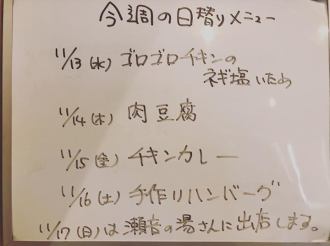 今週の日替りメニュー
11/13(水)ゴロゴロチキンの
ネギ塩いため
11/14(木)肉豆腐
11/15(金)チキンカレー
11/16(土)手作りハンバーグ
11/17(日)は瀬音の湯さんに出店しまる。